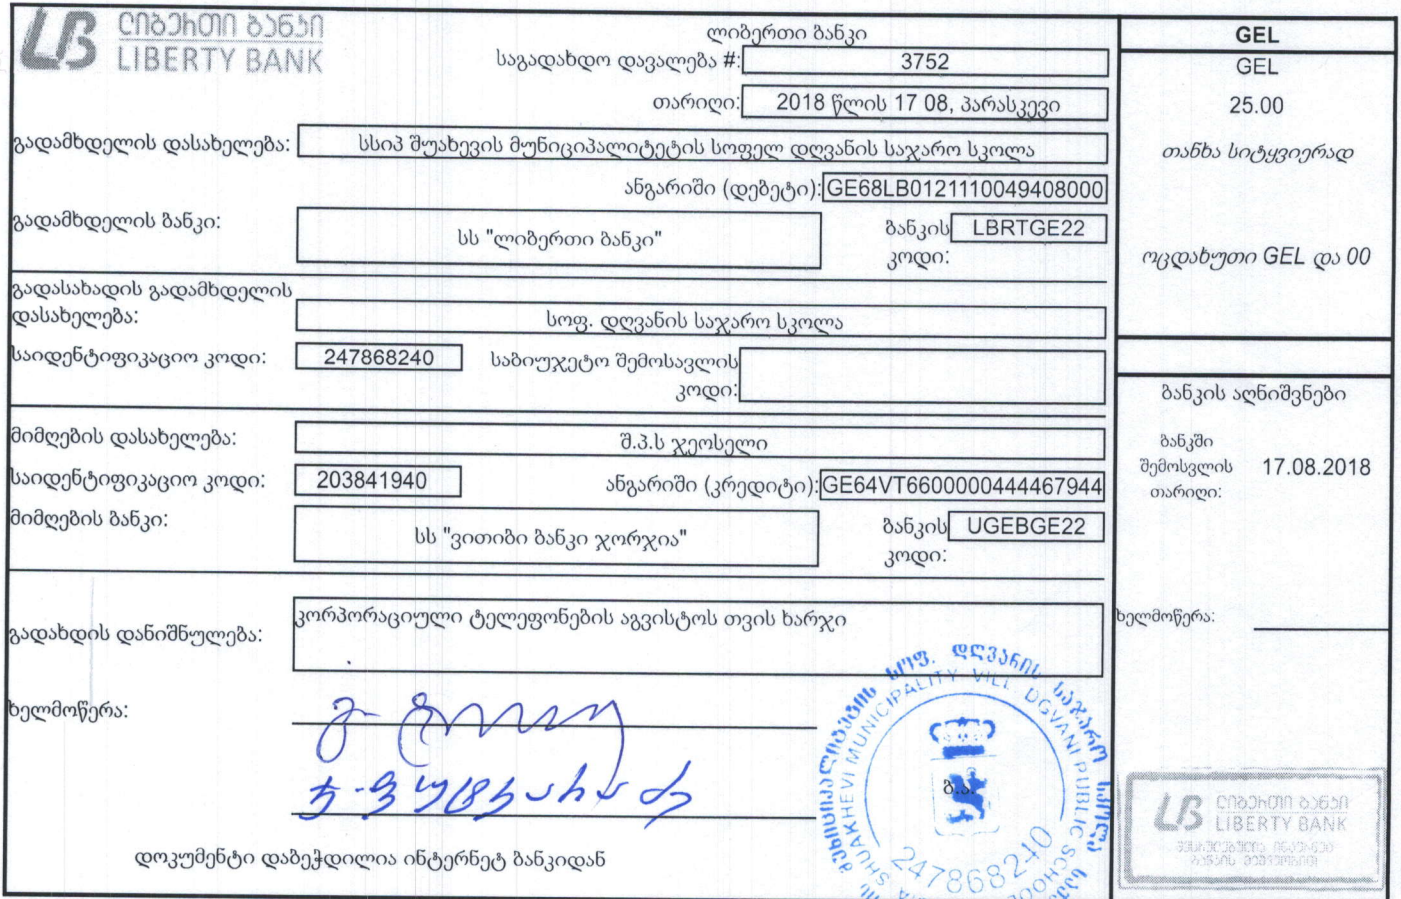 ლიბერთი ბანკი
LIBERTY BANK
ლიბერთი ბანკი
საგადახდო დავალება #: 3752
თარიღი: 2018 წლის 17 08, პარასკევი
გადამხდელის დასახელება: სსიპ შუახევის მუნიციპალიტეტის სოფელ დღვანის საჯარო სკოლა
ანგარიში (დებეტი): GE68LB0121110049408000
გადამხდელის ბანკი: სს "ლიბერთი ბანკი" ბანკის კოდი: LBRTGE22
გადასახადის გადამხდელის
დასახელება: სოფ. დღვანის საჯარო სკოლა
საიდენტიფიკაციო კოდი: 247868240 საბიუჯეტო შემოსავლის
კოდი:
მიმღების დასახელება: შ.პ.ს ჯეოსელი
საიდენტიფიკაციო კოდი: 203841940 ანგარიში (კრედიტი): GE64VT6600000444467944
მიმღების ბანკი: სს "ვითიბი ბანკი ჯორჯია" ბანკის კოდი: UGEBGE22
გადახდის დანიშნულება: კორპორაციული ტელეფონების აგვისტოს თვის ხარჯი
ხელმოწერა:
ბ.ა.
დოკუმენტი დაბეჭდილია ინტერნეტ ბანკიდან
GEL
GEL
25.00
თანხა სიტყვიერად
ოცდახუთი GEL და 00
ბანკის აღნიშვნები
ბანკში
შემოსვლის 17.08.2018
თარიღი:
ხელმოწერა:
მუნიციპალიტეტის სოფ. დღვანის საჯარო სკოლა
SHUAKHEVI MUNICIPALITY VILL. DGVANI PUBLIC SCHOOL
247868240
ლიბერთი ბანკი
LIBERTY BANK